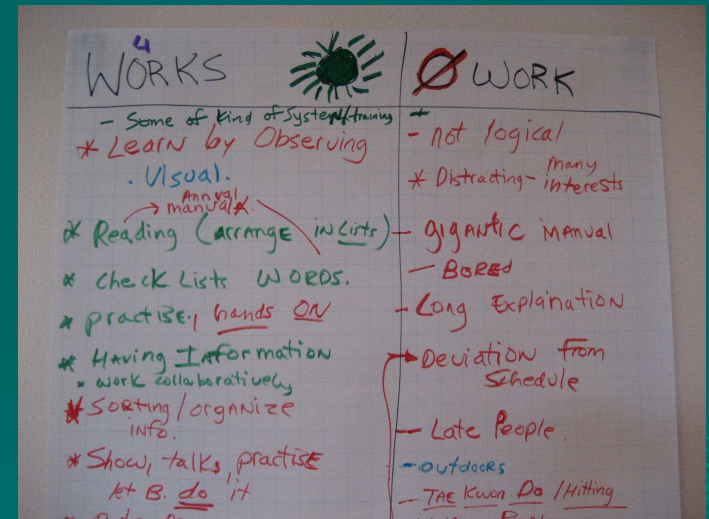 4
WORKS
- Some of kind of System/training
* Learn by Observing
. Visual.
Annual
manual
* Reading (arrange in Lists)
* Check Lists WORDS.
* practise, hands ON
* Having Information
* work collaboratively
* Sorting/organize
info.
* Show, talks, practise
let B. do it
Ø WORK
- not logical
* Distracting - Many
interests
- gigantic manual
- BORED
- Long Explaination
Deviation from
Schedule
- Late People.
- outdoors
- TAE Kwon Do / Hitting